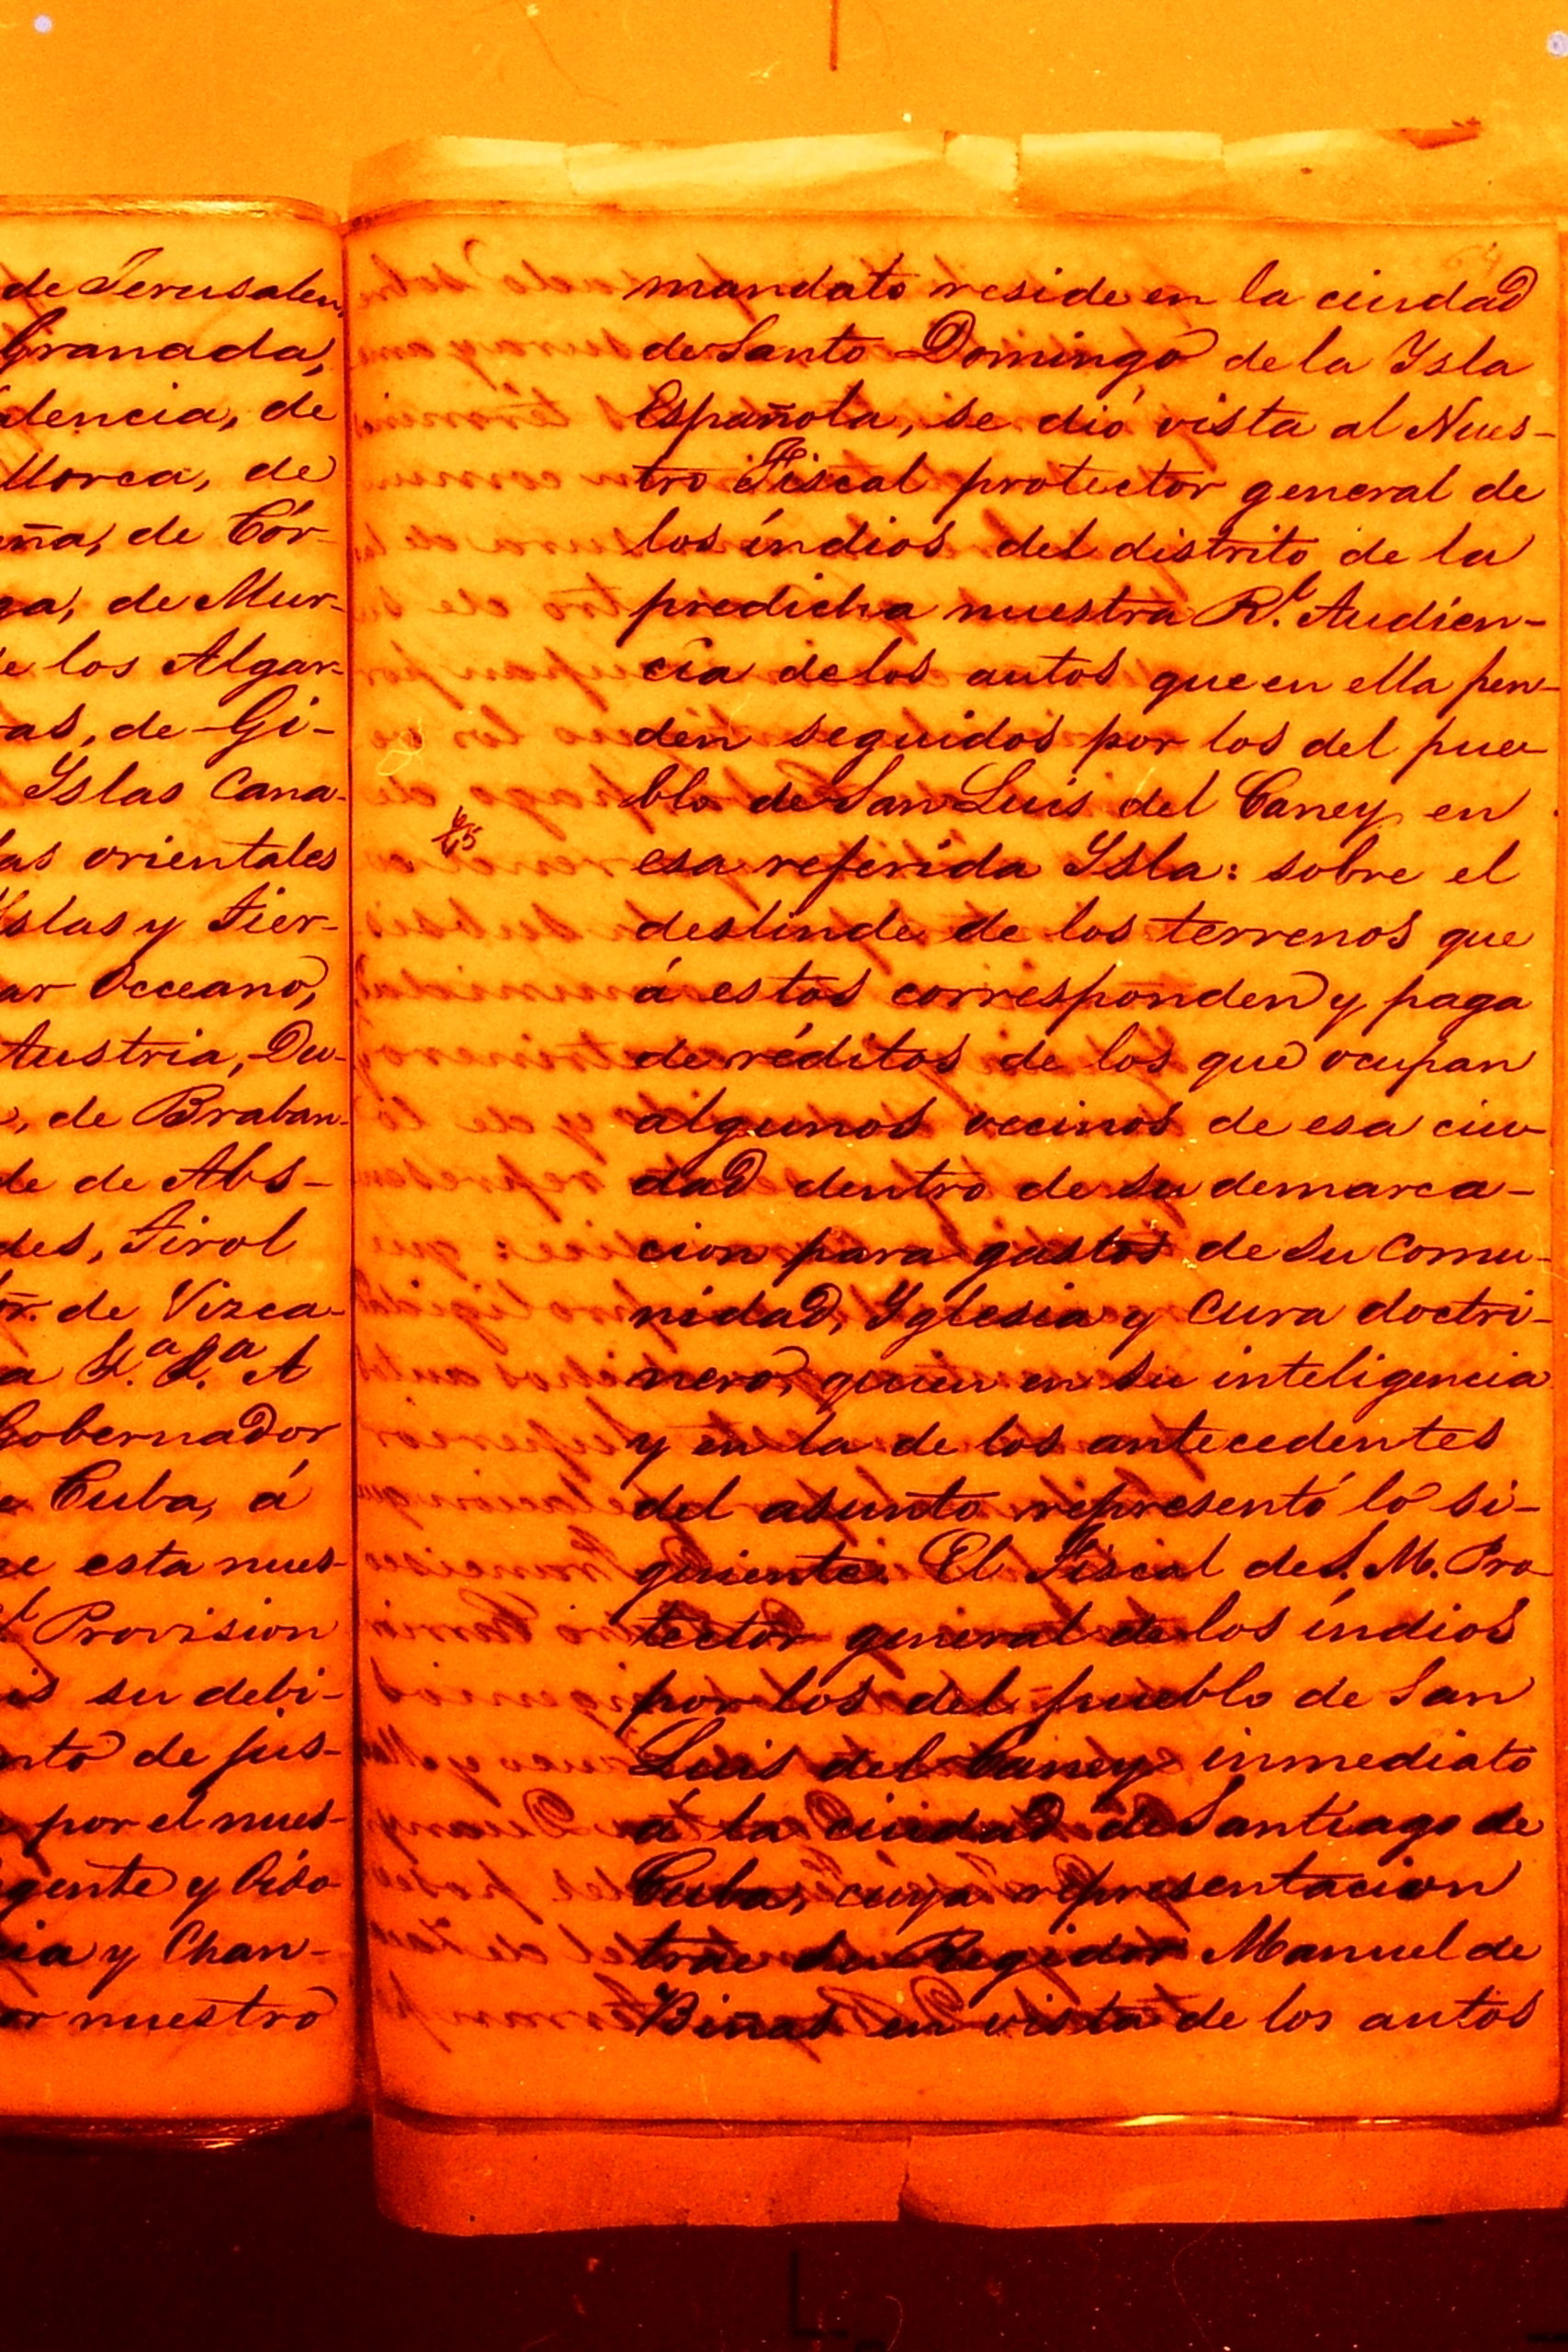 de Jerusalen,
Granada,
lencia, de
llorca, de
eña, de Cór-
ga, de Mur-
e los Algar-
as, de Gi-
Yslas Cana-
as orientales
Yslas y tier-
ar Occeano,
Austria, Du-
, de Braban-
de de Abs-
des, tirol
ñr. de Vizca-
a A
Gobernador
e Cuba, á
ce esta nues-
l Provision
is su debi-
nto de jus-
por el nues-
gente y Oido
cia y Chan-
or nuestro
mandato reside en la ciudad
de Santo Domingo de la Ysla
Española, se dió vista al Nues-
tro Fiscal protector general de
los índios del distrito de la
predicha nuestra Rl. Audien-
cia de los autos que en ella pen-
den seguidos por los del pue-
blo de San Luis del Caney, en
esa referida Ysla: sobre el
deslinde de los terrenos que
á estos corresponden y paga
de réditos de los que ocupan
algunos vecinos de esa ciu-
dad dentro de su demarca-
cion para gastos de su Comu-
nidad, Yglesia y Cura doctri-
nero, quien en su inteligencia
y en la de los antecedentes
del asunto representó lo si-
guiente. El Fiscal de S. M. Pro-
tector general de los índios
por los del pueblo de San
Luis del Caney inmediato
á la ciudad de Santiago de
Cuba, cuya representacion
trae su Regidor Manuel de
Binas en vista de los autos